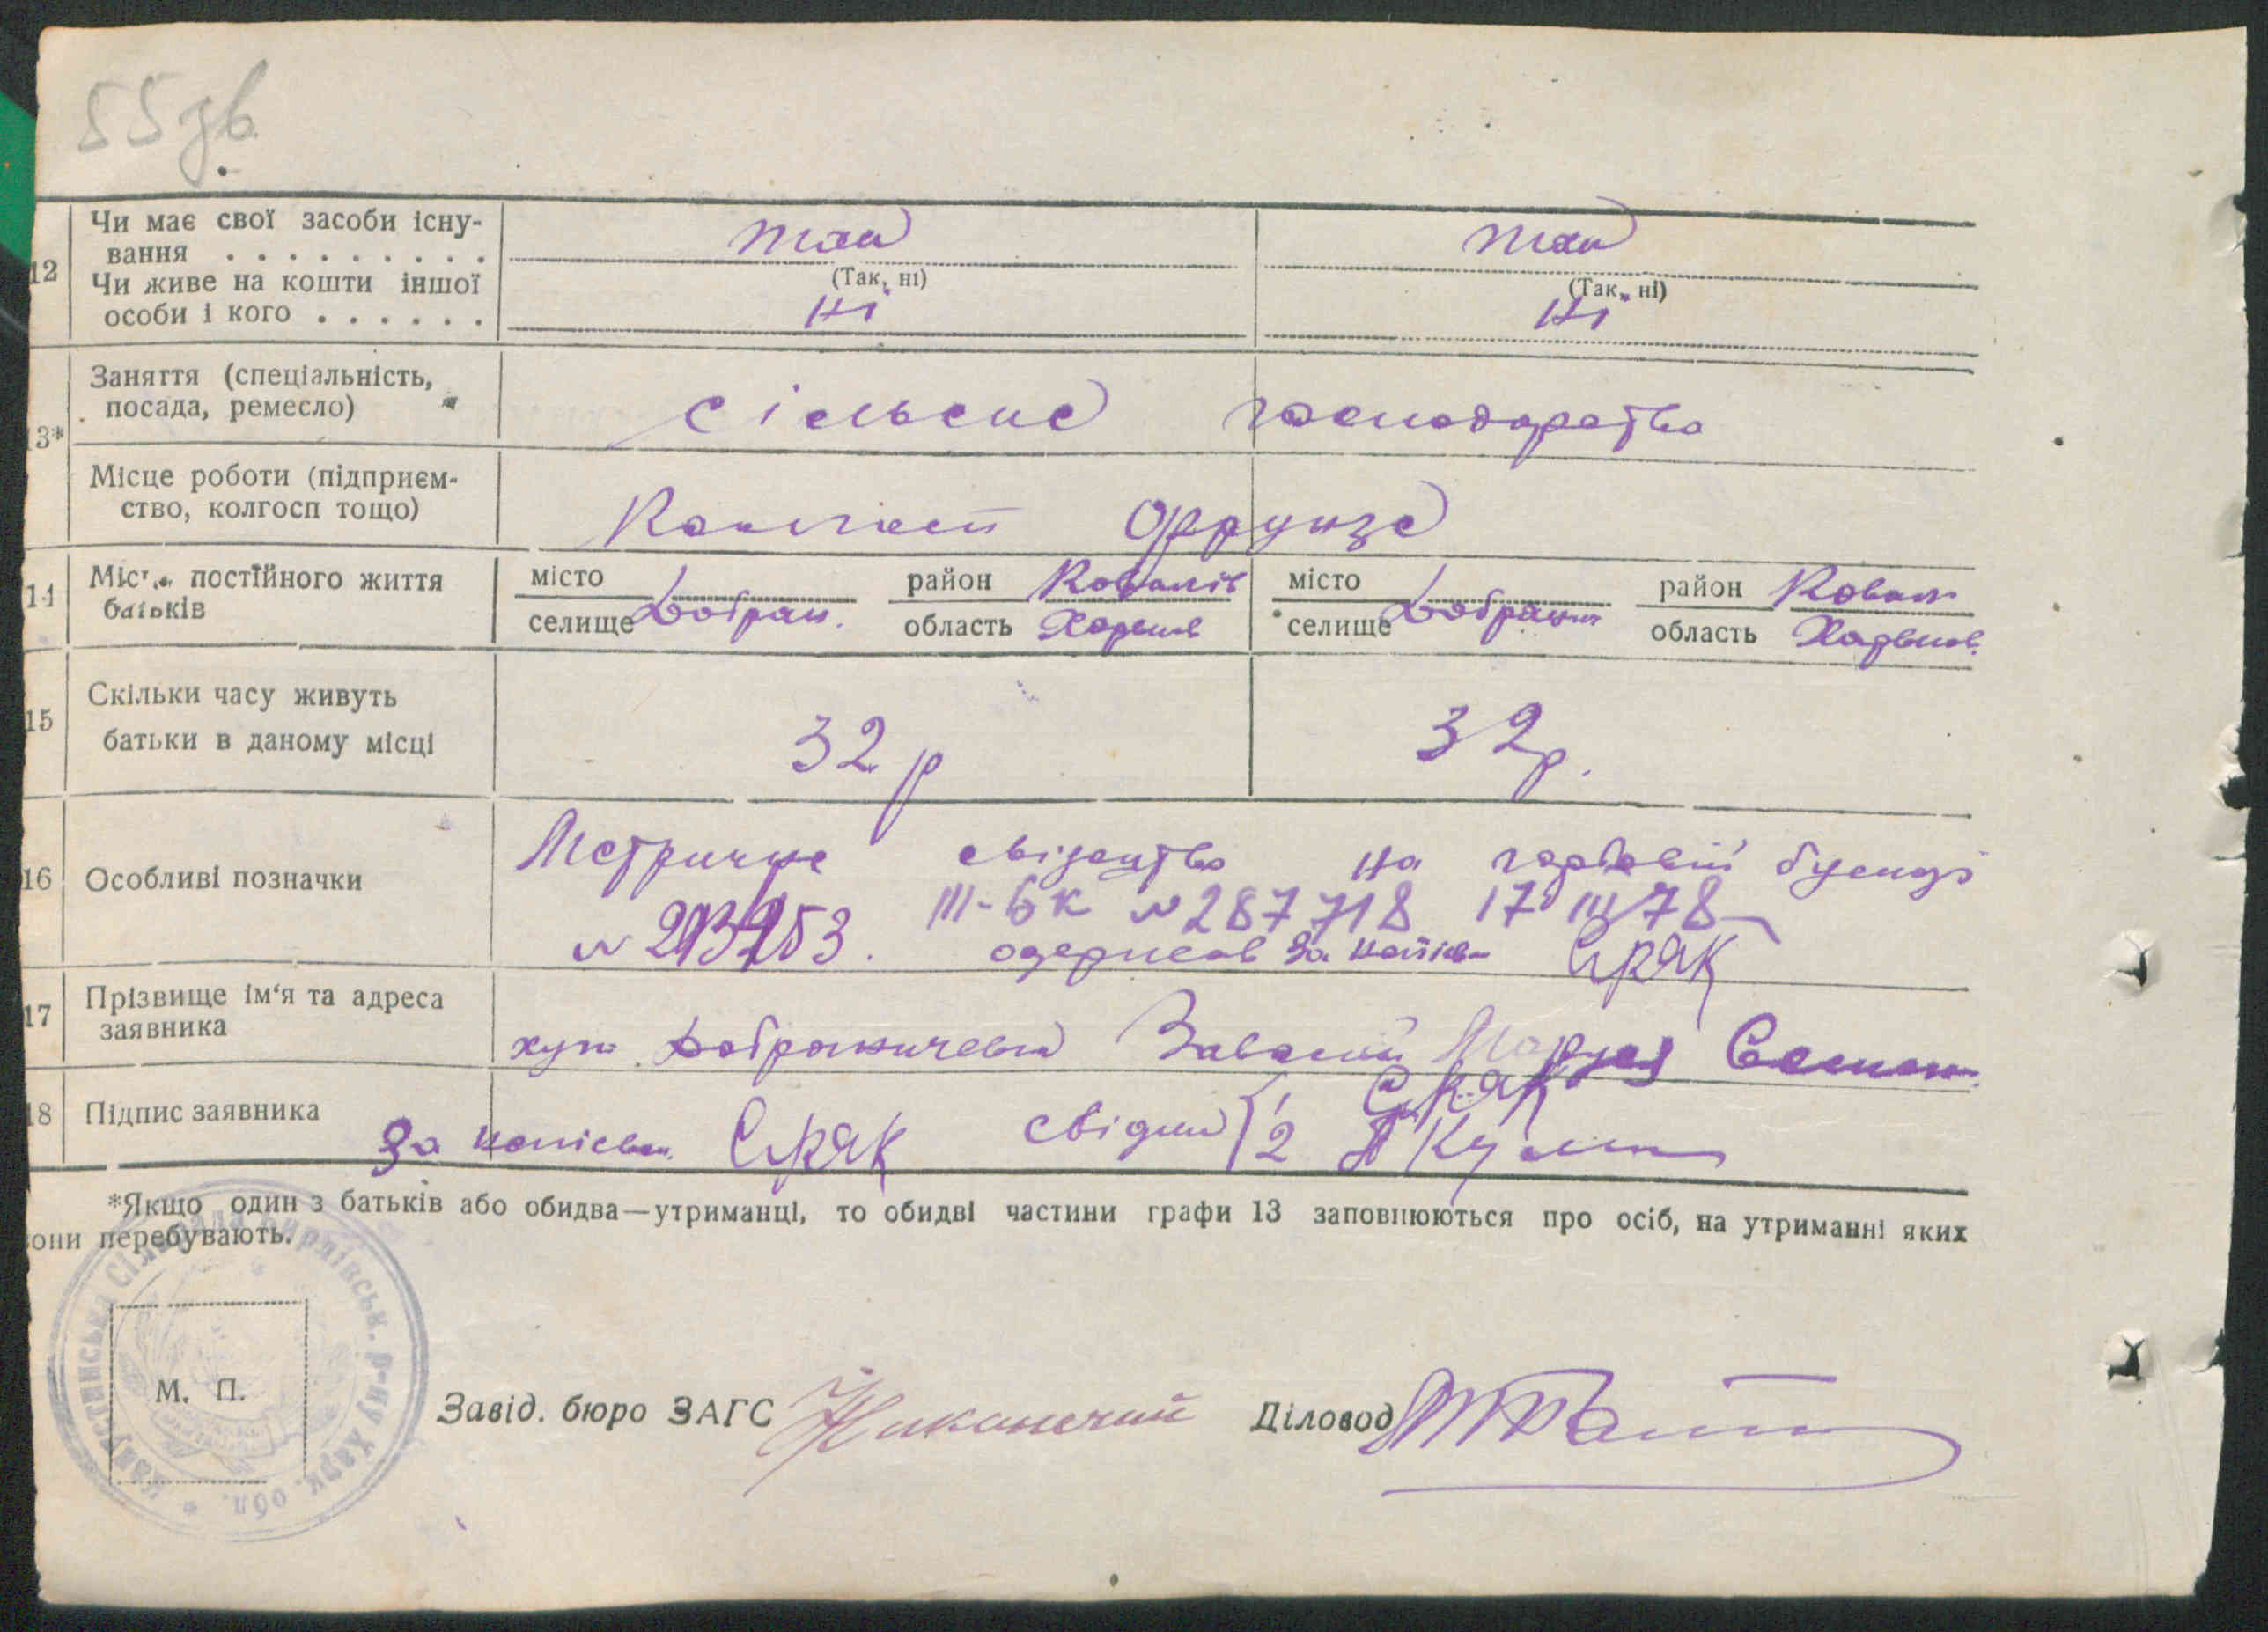 55 зв
12 Чи має свої засоби існу-
вання . . . . . . . . . так так
(Так, ні) (Так, ні)
Чи живе на кошти іншої
особи і кого . . . . . . ні ні
13* Заняття (спеціальність,
посада, ремесло) сільське господарство
Місце роботи (підприєм-
ство, колгосп тощо) Фрунзе
14 Місце постійного життя
батьків
місто район Ковалів місто район Ковал
селище Добран. область Харьков селище Добран область Харьков.
15 Скільки часу живуть
батьки в даному місці 32 р 32 р.
16 Особливі позначки
Метричне свідоцтво на гербовій бумазі
III-БК № 287718 17 III 78
№ 293253. одержав За
17 Прізвище ім‘я та адреса
заявника
хут. Добраничевка Маруся Семен
18 Підпис заявника
За свідки 1
2
*Якщо один з батьків або обидва—утриманці, то обидві частини графи 13 заповнюються про осіб, на утриманні яких
вони перебувають.
сільрада р-ну Харк. обл.
М. П.
Завід. бюро ЗАГС Діловод